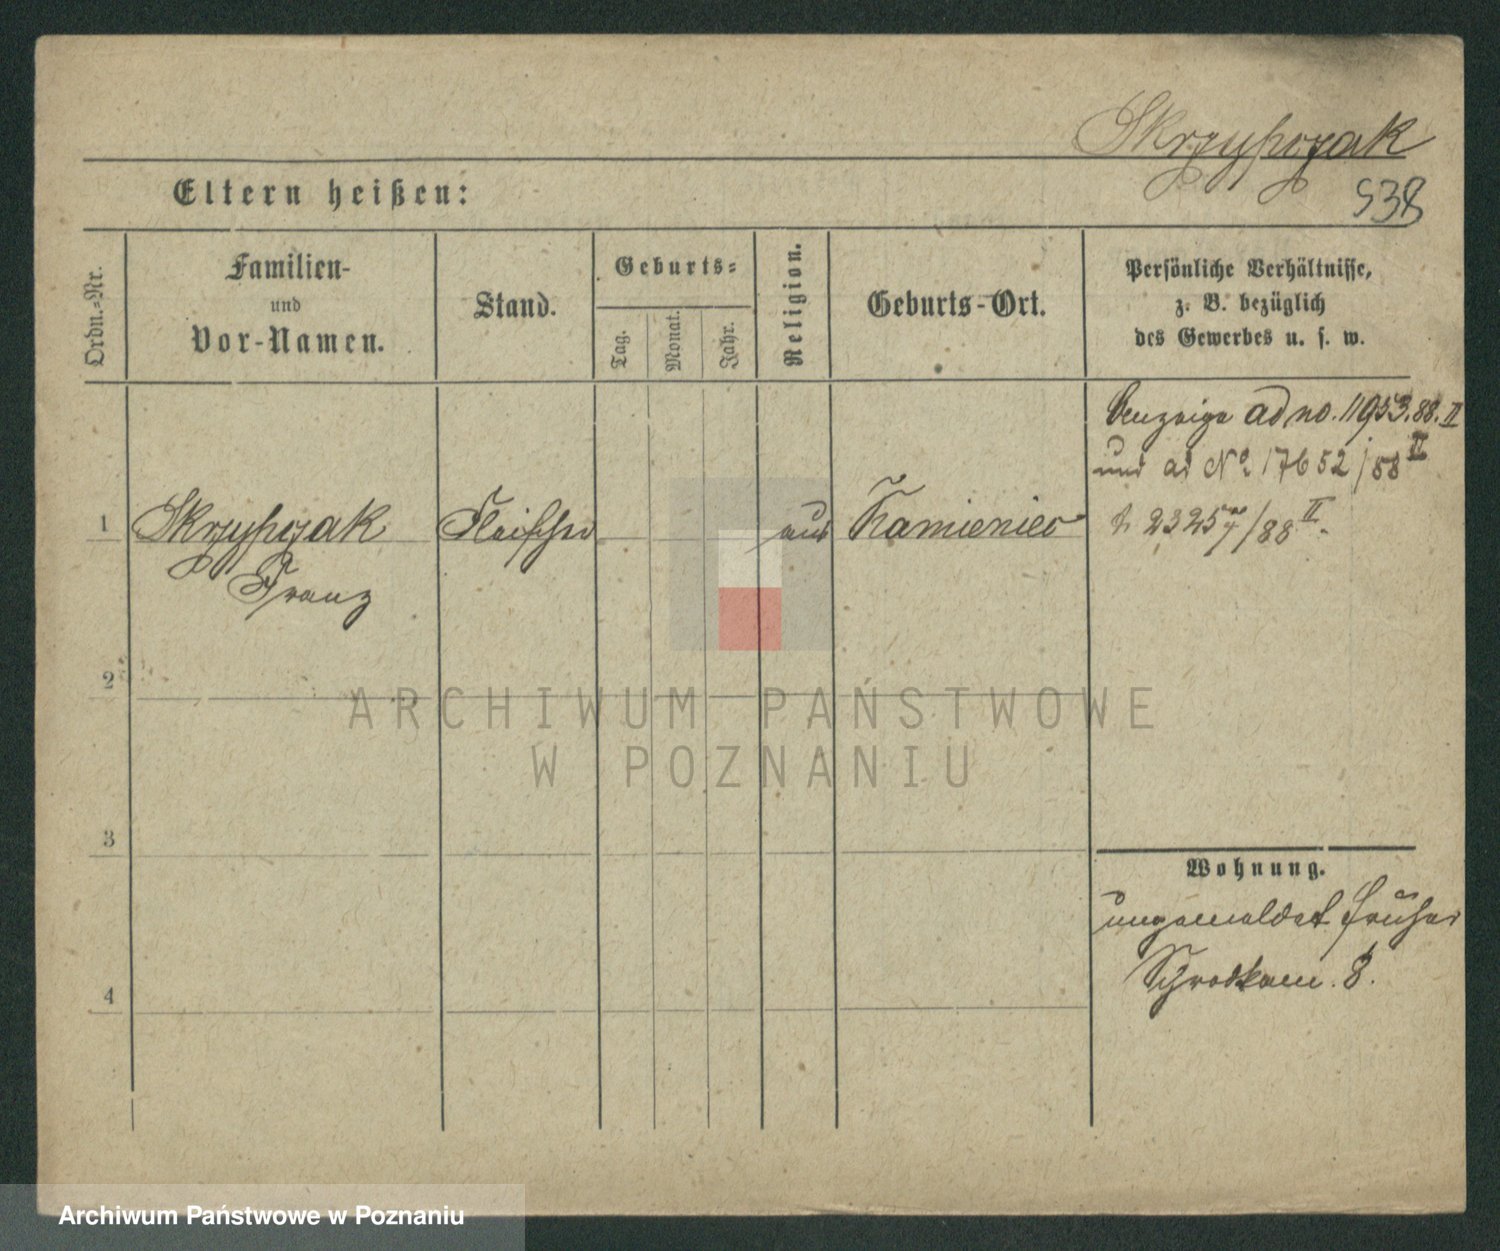 Skrzypczak
538
Eltern heißen:
Ordn.-Nr.
Familien-
und
Vor-Namen.
Stand.
Geburts-
Tag.
Monat.
Jahr.
Religion.
Geburts-Ort.
Persönliche Verhältnisse,
z. B. bezüglich
des Gewerbes u. s. w.
Anzeige ad no. 11953.88.II
und ad No 17652/88 II
23257/88 II.
1 Skrzypczak Fleischer aus Kamieniec
Franz
2
3
4
Wohnung.
ungemeldet früher
Schrodkam. 8.
ARCHIWUM PAŃSTWOWE
W POZNANIU
Archiwum Państwowe w Poznaniu